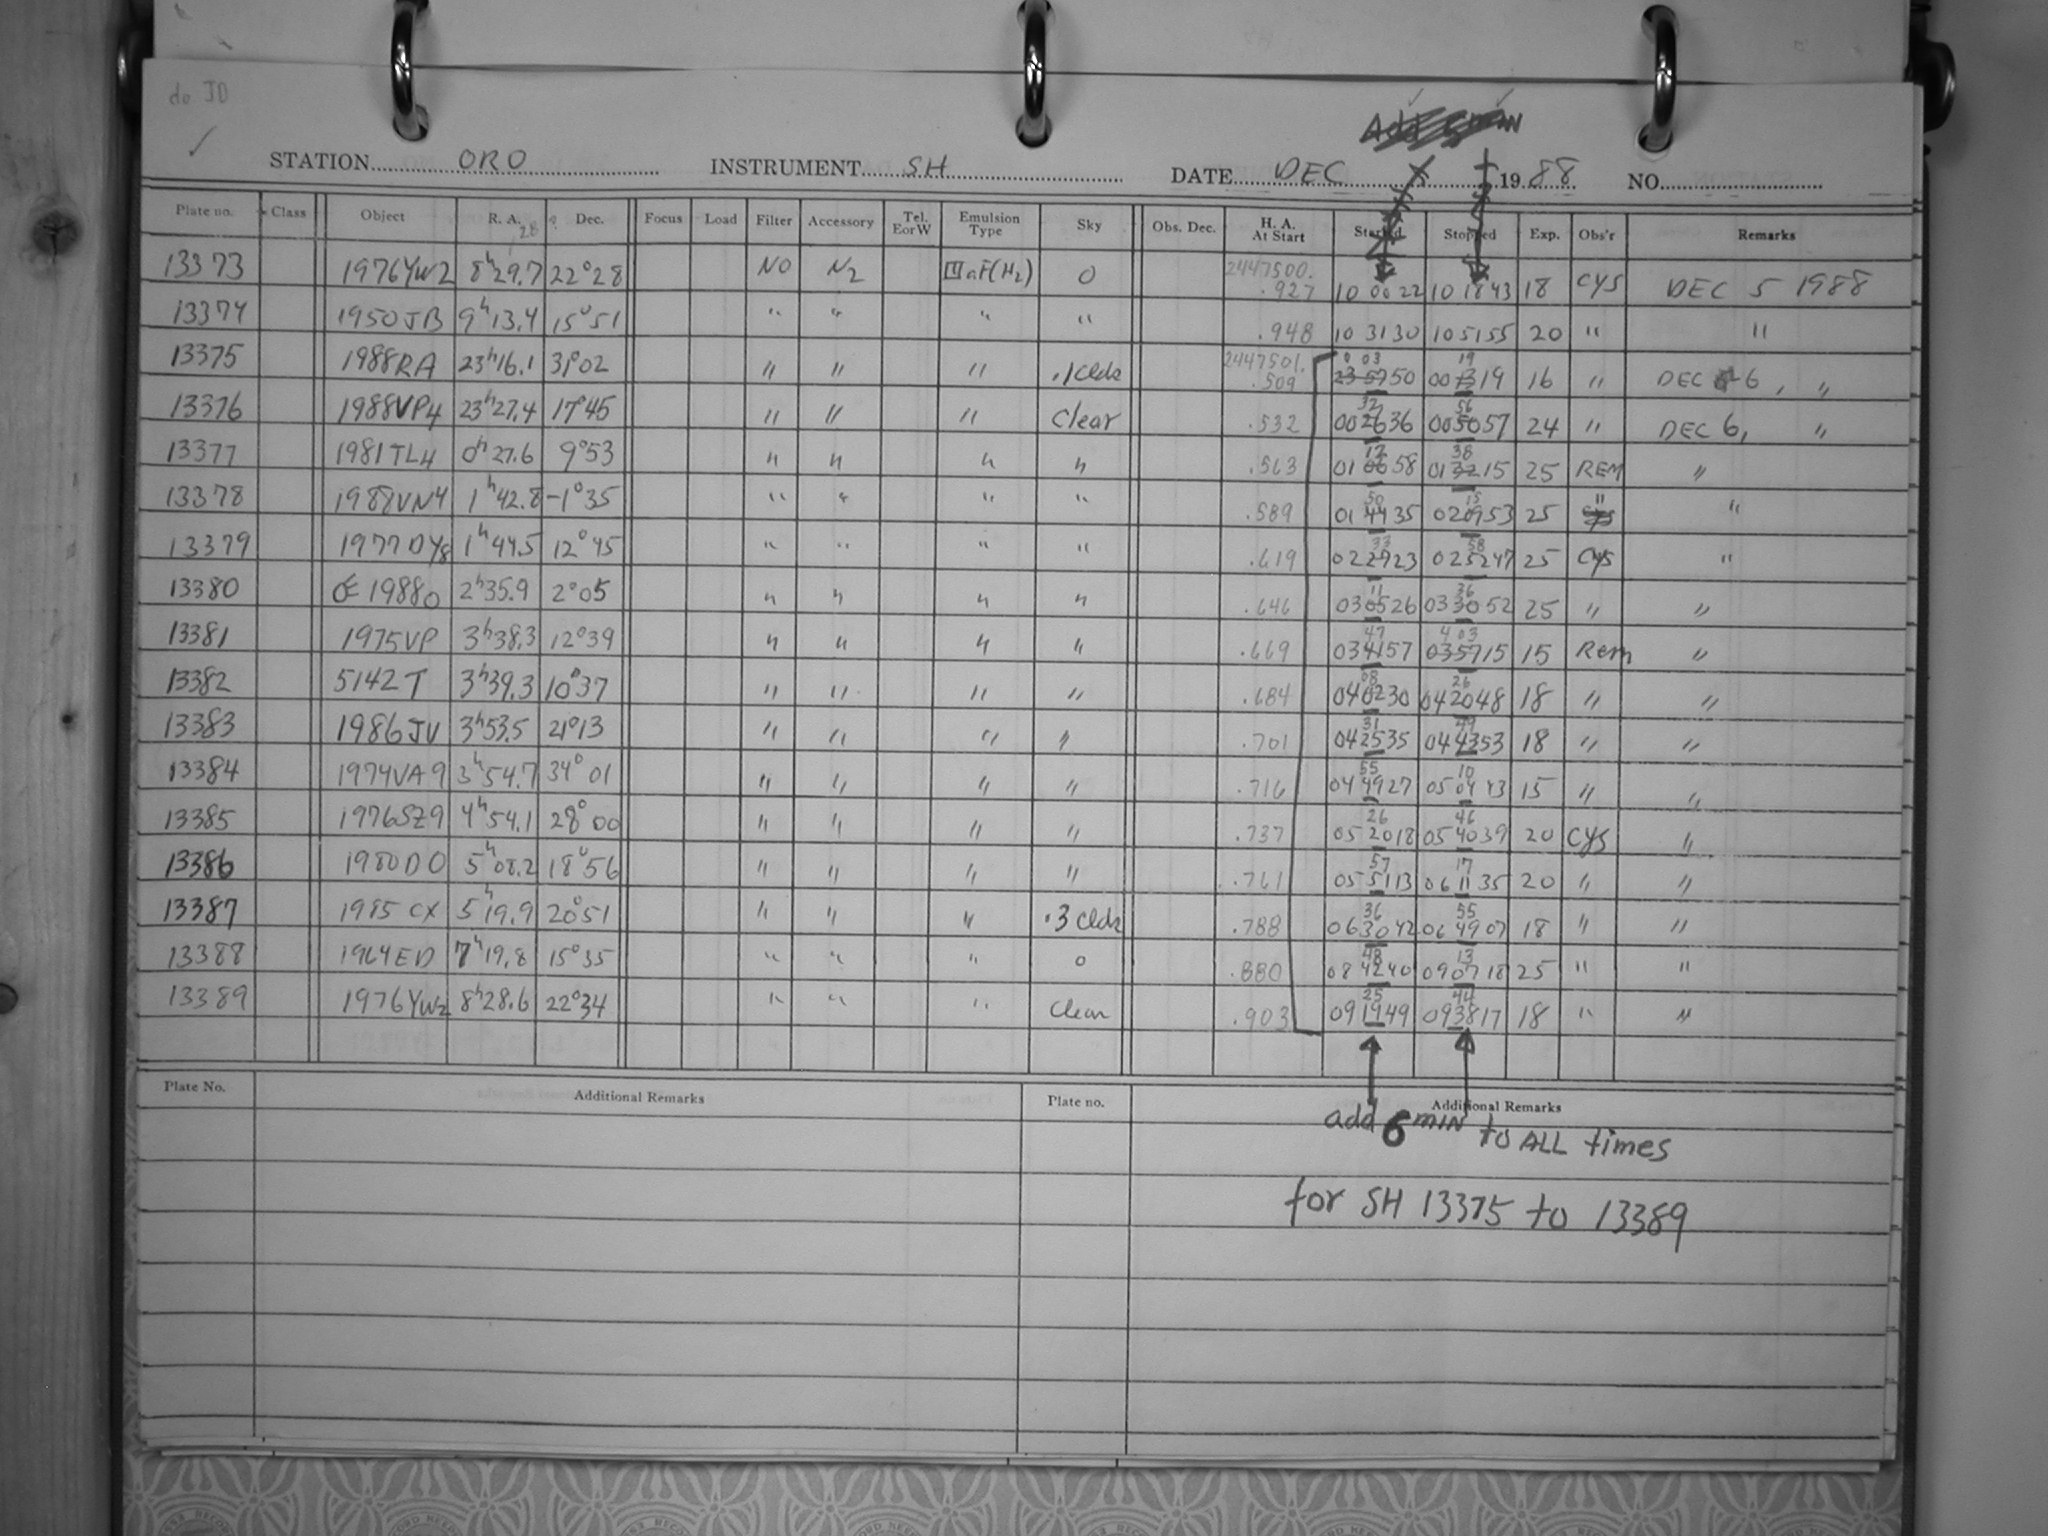 de JD
Add 5 MIN
STATION ORO INSTRUMENT SH DATE DEC 1988 NO.
Plate no. Class Object R. A. Dec. Focus Load Filter Accessory Tel. E or W Emulsion Type Sky Obs. Dec. H. A. At Start Started Stopped Exp. Obs'r Remarks
28
13373 1976YW2 8h29.7 22°28 NO N2 IIIaF(H2) 0 2447500. .927 10 00 22 10 18 43 18 CYS DEC 5 1988
13374 1950JB 9h13.4 15°51 " " " " .948 10 31 30 10 51 55 20 " "
13375 1988RA 23h16.1 31°02 " " " .1 clds 2447501. .509 0 03 23 57 50 19 00 13 19 16 " DEC 6, "
13376 1988VP4 23h27.4 17°45 " " " Clear .532 32 00 26 36 56 00 50 57 24 " DEC 6, "
13377 1981TL4 0h27.6 9°53 " " " " .563 12 01 06 58 38 01 32 15 25 REM "
13378 1988VN4 1h42.8 -1°35 " " " " .589 50 01 44 35 15 02 09 53 25 " "
13379 1977DY8 1h44.5 12°45 " " " " .619 33 02 27 23 58 02 52 47 25 CYS "
13380 Œ 1988o 2h35.9 2°05 " " " " .646 11 03 05 26 36 03 30 52 25 " "
13381 1975VP 3h38.3 12°39 " " " " .669 47 03 41 57 4 03 03 57 15 15 Rem "
13382 5142 T 3h39.3 10°37 " " " " .684 08 04 02 30 26 04 20 48 18 " "
13383 1986JV 3h53.5 21°13 " " " " .701 31 04 25 35 49 04 43 53 18 " "
13384 1974VA9 3h54.7 34°01 " " " " .716 55 04 49 27 10 05 04 43 15 " "
13385 1976SZ9 4h54.1 28°00 " " " " .737 26 05 20 18 46 05 40 39 20 CYS "
13386 1980DO 5h08.2 18°56 " " " " .761 57 05 51 13 17 06 11 35 20 " "
13387 1985 CX 5h19.9 20°51 " " " .3 clds .788 36 06 30 42 55 06 49 07 18 " "
13388 1964ED 7h19.8 15°35 " " " 0 .880 48 08 42 40 13 09 07 18 25 " "
13389 1976YW2 8h28.6 22°34 " " " Clear .903 25 09 19 49 44 09 38 17 18 " "
Plate No. Additional Remarks Plate no. Additional Remarks
add 6 MIN to ALL times
for SH 13375 to 13389